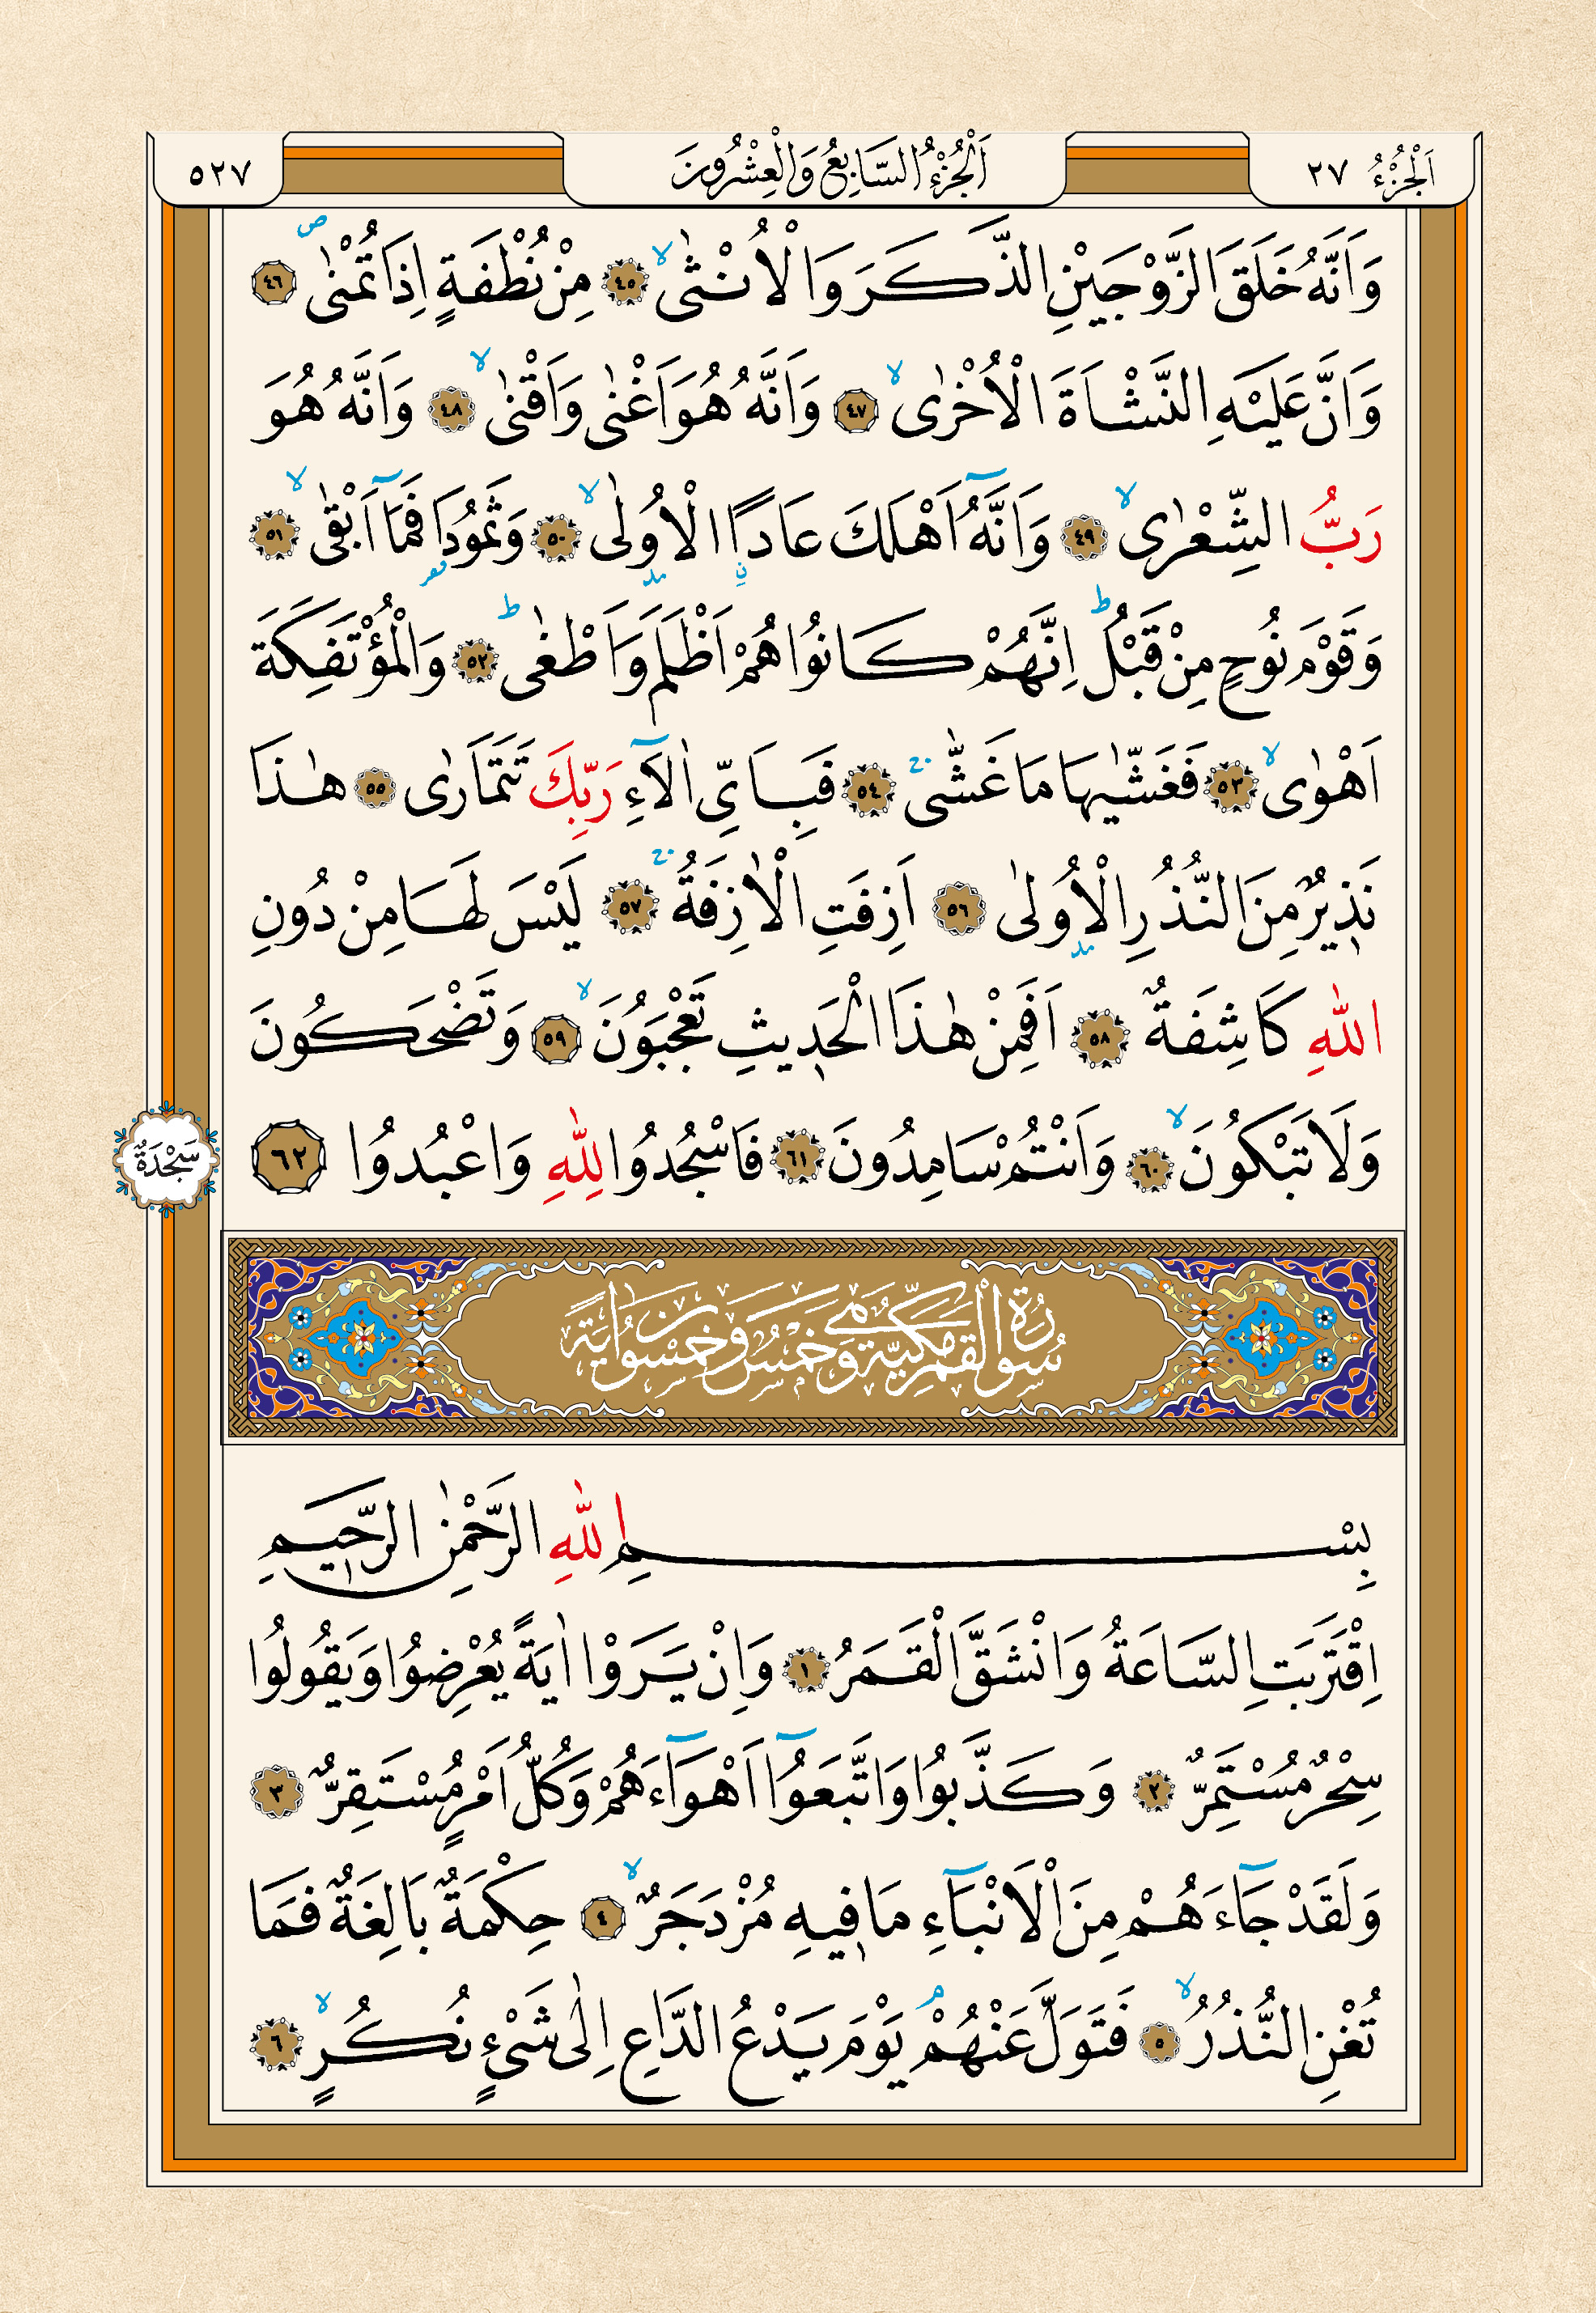 اَلْجُزْءُ ٢٧
اَلْجُزْءُ السَّابِعُ وَالْعِشْرُونَ
٥٢٧
وَاَنَّهُ خَلَقَ الزَّوْجَيْنِ الذَّكَرَ وَالْاُنْثٰىۙ ﴿٤٥﴾ مِنْ نُطْفَةٍ اِذَا تُمْنٰىۖ ﴿٤٦﴾
وَاَنَّ عَلَيْهِ النَّشْاَةَ الْاُخْرٰىۙ ﴿٤٧﴾ وَاَنَّهُ هُوَ اَغْنٰى وَاَقْنٰىۙ ﴿٤٨﴾ وَاَنَّهُ هُوَ
رَبُّ الشِّعْرٰىۙ ﴿٤٩﴾ وَاَنَّهُٓ اَهْلَكَ عَادًاۨ الْاُو۫لٰىۙ ﴿٥٠﴾ وَثَمُودَا۬ فَمَٓا اَبْقٰىۙ ﴿٥١﴾
وَقَوْمَ نُوحٍ مِنْ قَبْلُۜ اِنَّهُمْ كَانُوا هُمْ اَظْلَمَ وَاَطْغٰىۜ ﴿٥٢﴾ وَالْمُؤْتَفِكَةَ
اَهْوٰىۙ ﴿٥٣﴾ فَغَشّٰيهَا مَا غَشّٰىۚ ﴿٥٤﴾ فَبِاَىِّ اٰلَٓاءِ رَبِّكَ تَتَمَارٰى ﴿٥٥﴾ هٰذَا
نَذ۪يرٌ مِنَ النُّذُرِ الْاُو۫لٰى ﴿٥٦﴾ اَزِفَتِ الْاٰزِفَةُۚ ﴿٥٧﴾ لَيْسَ لَهَا مِنْ دُونِ
اللّٰهِ كَاشِفَةٌ ﴿٥٨﴾ اَفَمِنْ هٰذَا الْحَد۪يثِ تَعْجَبُونَۙ ﴿٥٩﴾ وَتَضْحَكُونَ
وَلَا تَبْكُونَۙ ﴿٦٠﴾ وَاَنْتُمْ سَامِدُونَ ﴿٦١﴾ فَاسْجُدُوا لِلّٰهِ وَاعْبُدُوا ﴿٦٢﴾
سَجْدَةٌ
سُورَةُ الْقَمَرِ مَكِّيَّةٌ وَهِىَ خَمْسٌ وَخَمْسُونَ اٰيَةً
بِسْمِ اللّٰهِ الرَّحْمٰنِ الرَّح۪يمِ
اِقْتَرَبَتِ السَّاعَةُ وَانْشَقَّ الْقَمَرُ ﴿١﴾ وَاِنْ يَرَوْا اٰيَةً يُعْرِضُوا وَيَقُولُوا
سِحْرٌ مُسْتَمِرٌّ ﴿٢﴾ وَكَذَّبُوا وَاتَّبَعُٓوا اَهْوَٓاءَهُمْ وَكُلُّ اَمْرٍ مُسْتَقِرٌّ ﴿٣﴾
وَلَقَدْ جَٓاءَهُمْ مِنَ الْاَنْبَٓاءِ مَا ف۪يهِ مُزْدَجَرٌۙ ﴿٤﴾ حِكْمَةٌ بَالِغَةٌ فَمَا
تُغْنِ النُّذُرُۙ ﴿٥﴾ فَتَوَلَّ عَنْهُمْۢ يَوْمَ يَدْعُ الدَّاعِ اِلٰى شَىْءٍ نُكُرٍۙ ﴿٦﴾